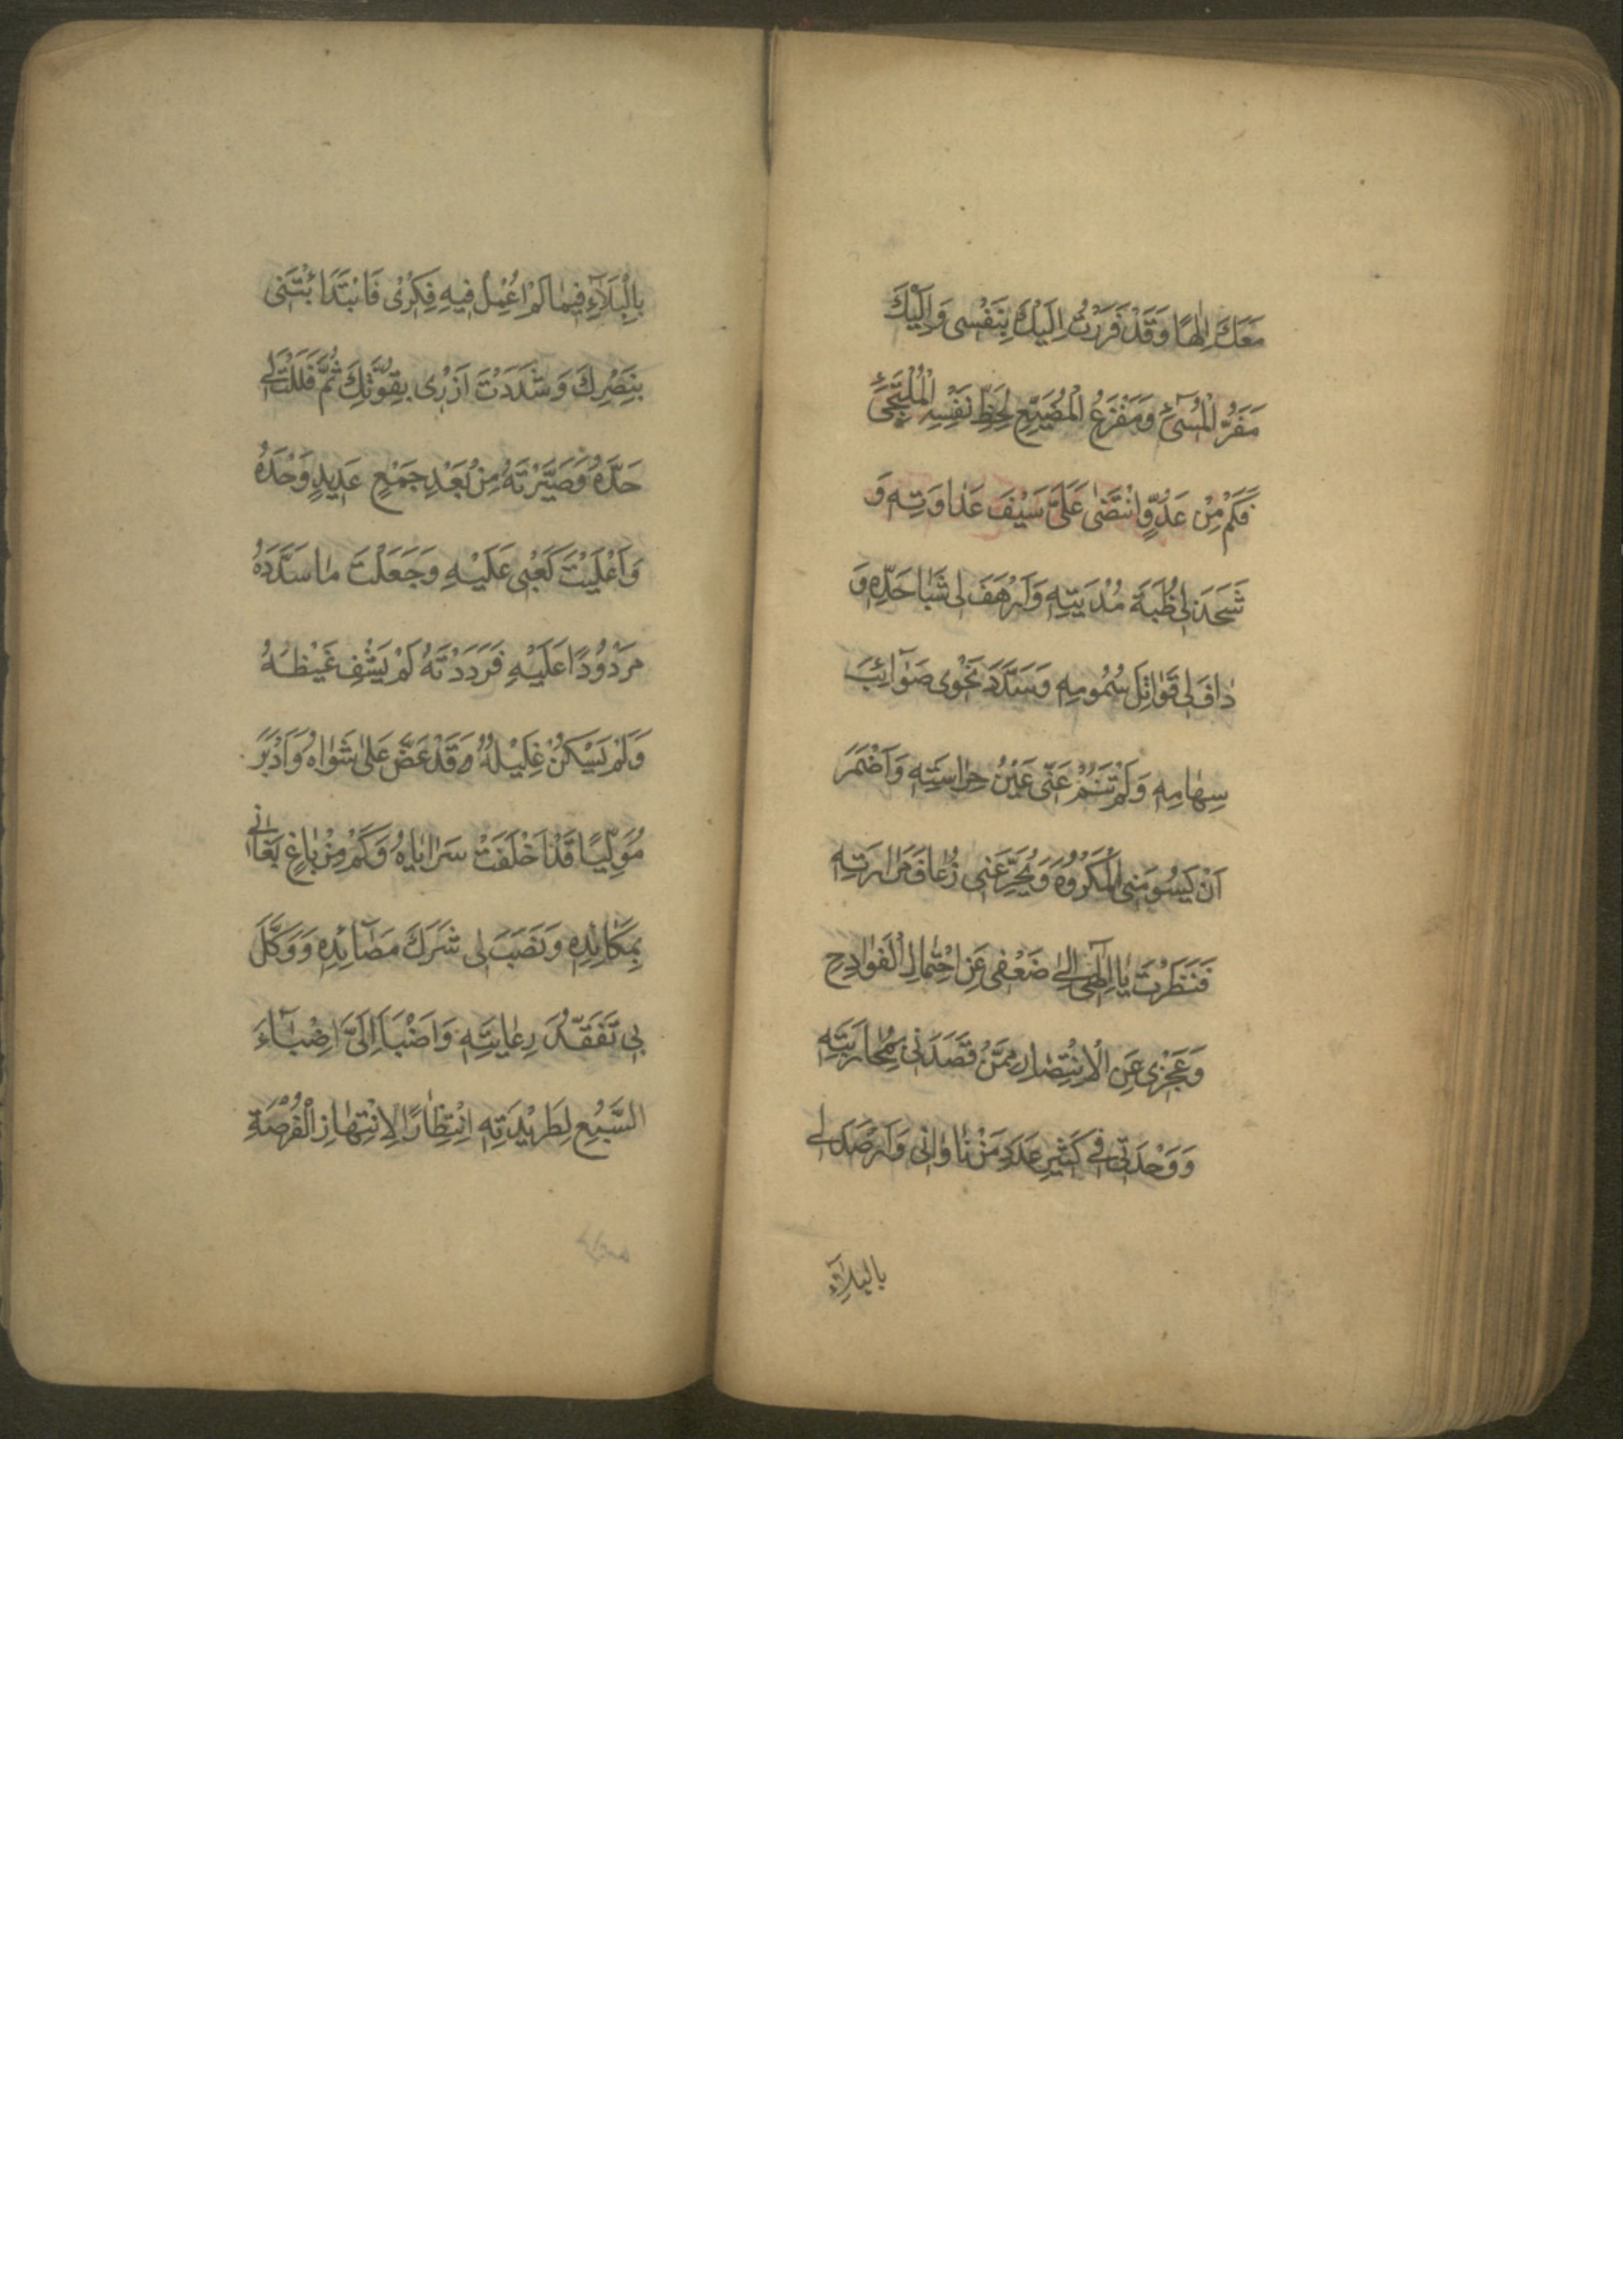 مَعَكَ اِلٰهًا وَقَدْ فَرَرْتُ اِلَيْكَ بِنَفْسى وَاِلَيْكَ
مَفَرُّ الْمُسىٓءِ وَمَفْزَعُ الْمُضَيِّعِ لِحَظِّ نَفْسِهِ الْمُلْتَجِئِ
فَكَمْ مِنْ عَدُوٍّ انْتَضٰى عَلَىَّ سَيْفَ عَدٰاوَتِهِ وَ
شَحَذَ لى ظُبَةَ مُدْيَتِهِ وَاَرْهَفَ لى شَبٰا حَدِّهِ وَ
دٰافَ لى قَوٰاتِلَ سُمُومِهِ وَسَدَّدَ نَحْوى صَوٰٓائِبَ
سِهٰامِهِ وَلَمْ تَنَمْ عَنّى عَيْنُ حِرٰاسَتِهِ وَاَضْمَرَ
اَنْ يَسُومَنِى الْمَكْرُوهَ وَيُجَرِّعَنى زُعٰافَ مَرٰارَتِهِ
فَنَظَرْتَ يٰا اِلٰهى اِلىٰ ضَعْفى عَنِ احْتِمٰالِ الْفَوٰادِحِ
وَعَجْزى عَنِ الْاِنْتِصٰارِ مِمَّنْ قَصَدَنى بِمُحٰارَبَتِهِ
وَوَحْدَتى فى كَثيرِ عَدَدِ مَنْ نٰاوٰانى وَاَرْصَدَ لى
بالبلاۤءِ
بِالْبَلَآءِ فيمٰا لَمْ اُعْمِلْ فيهِ فِكْرى فَابْتَدَاْتَنى
بِنَصْرِكَ وَشَدَدْتَ اَزْرى بِقُوَّتِكَ ثُمَّ فَلَلْتَ لى
حَدَّهُ وَصَيَّرْتَهُ مِنْ بَعْدِ جَمْعٍ عَديدٍ وَحْدَهُ
وَاَعْلَيْتَ كَعْبى عَلَيْهِ وَجَعَلْتَ مٰا سَدَّدَهُ
مَرْدُودًا عَلَيْهِ فَرَدَدْتَهُ لَمْ يَشْفِ غَيْظَهُ
وَلَمْ يَسْكُنْ غَليلُهُ وَقَدْ عَضَّ عَلىٰ شَوٰاهُ وَاَدْبَرَ
مُوَلِّيًا قَدْ اَخْلَفَتْ سَرٰايٰاهُ وَكَمْ مِنْ بٰاغٍ بَغٰانى
بِمَكٰائِدِهِ وَنَصَبَ لى شَرَكَ مَصٰٓائِدِهِ وَوَكَّلَ
بى تَفَقُّدَ رِعٰايَتِهِ وَاَضْبَاَ اِلَىَّ اِضْبٰٓاءَ
السَّبُعِ لِطَريْدَتِهِ انْتِظٰارًا لِانْتِهٰازِ الْفُرْصَةِ